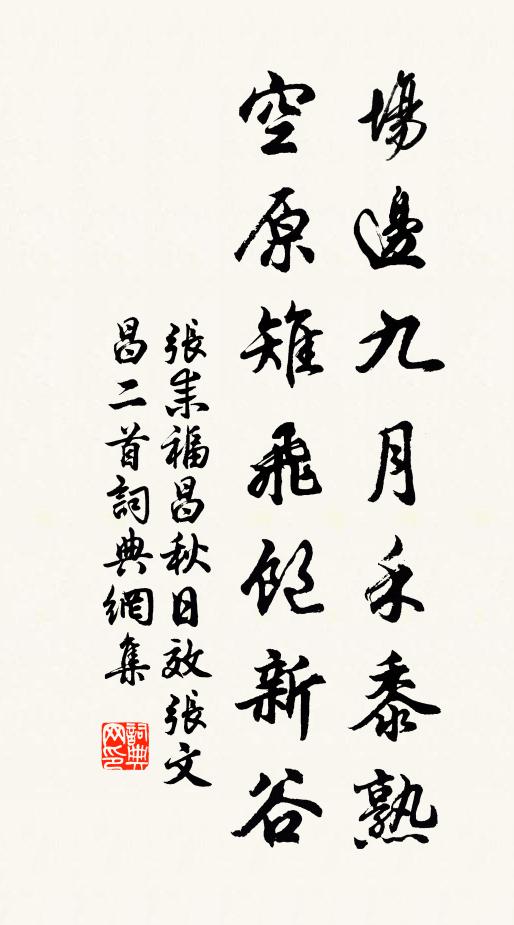 場邊九月禾黍熟
空原雉飛飽新谷
張耒福昌秋日效張文
昌二首詞典網集
詞典网印